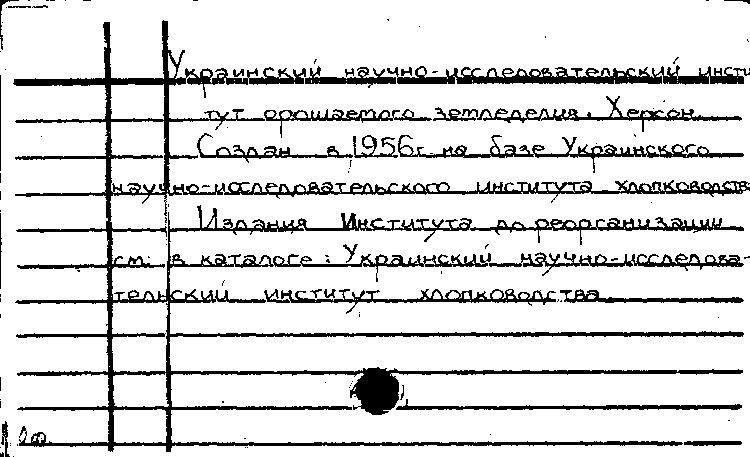 Украинский научно-исследовательский инсти
тут орошаемого земледелия. Херсон.
Создан в 1956г. на базе Украинского
научно-исследовательского института хлопководства
Издания Института до реорганизации
см. в каталоге: Украинский научно-исследова-
тельский институт хлопководства.